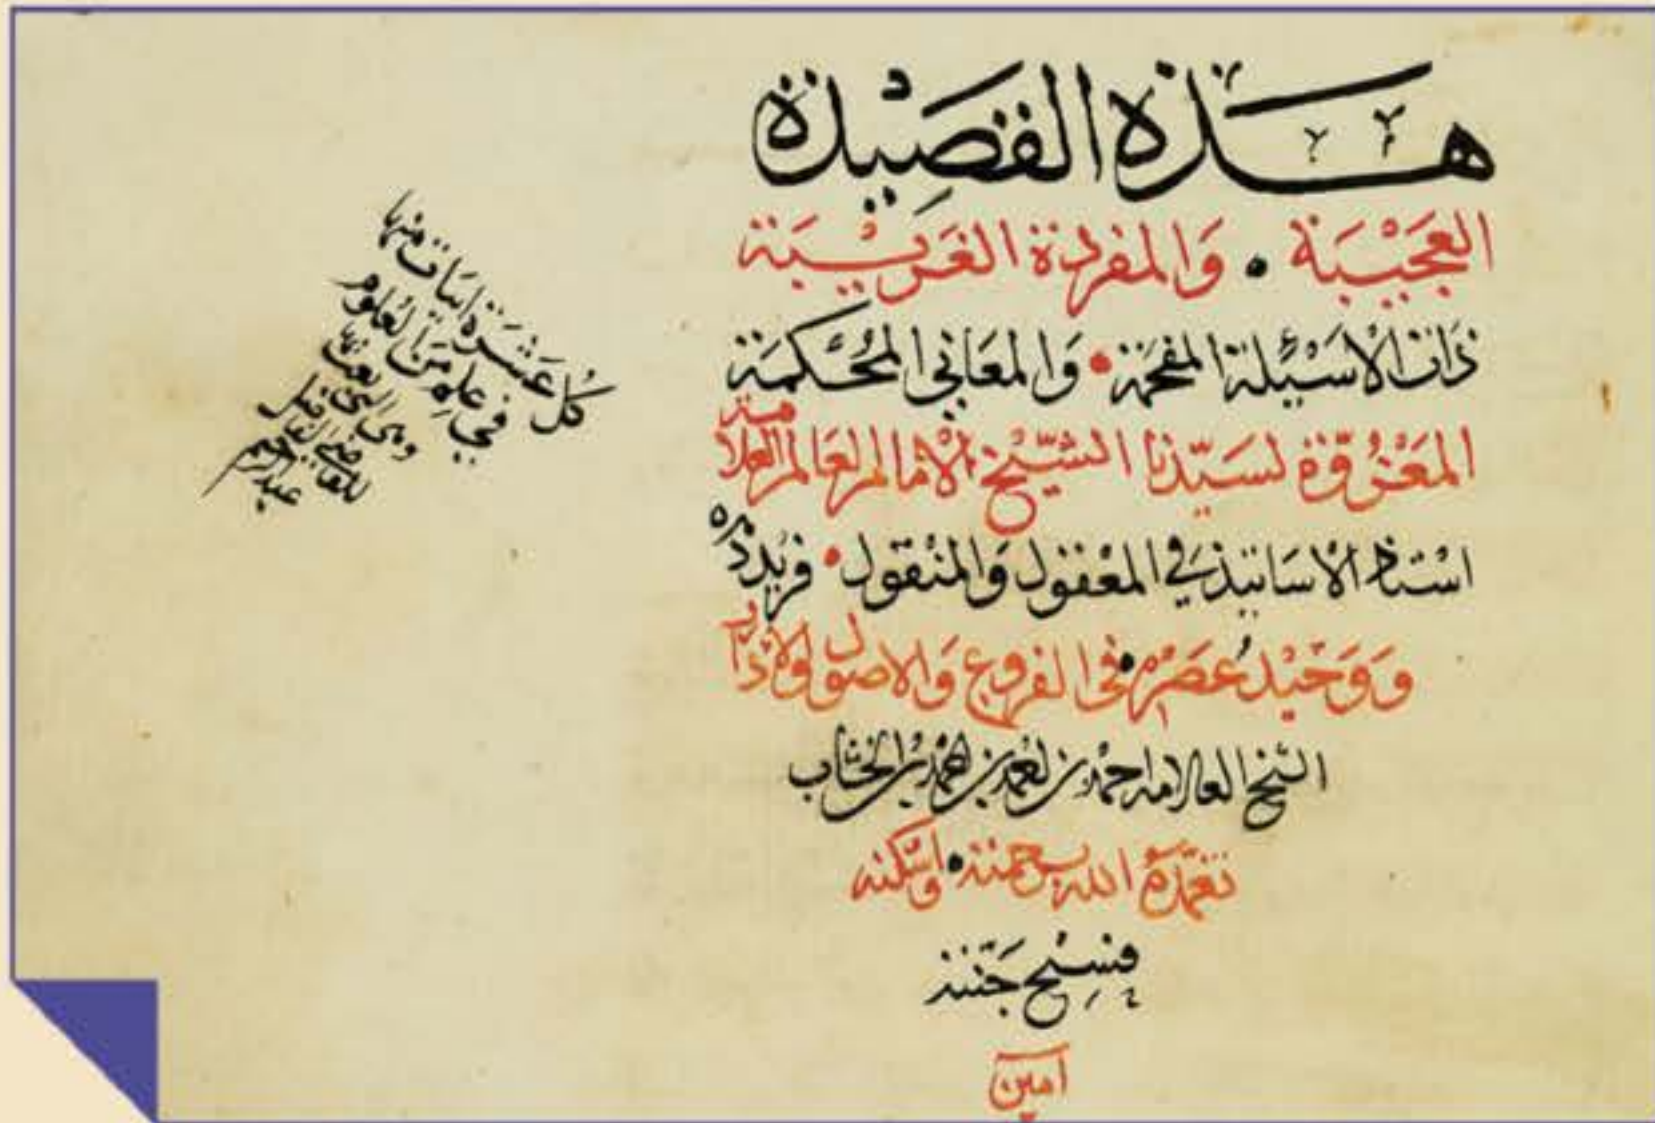 هَذِهِ القَصِيْدَة
العَجِيْبَة • وَالمفردة الغَريْبَة
ذات الأسْئِلة المفحمَة • وَالمعَاني المُحْكمَة
المَعْرُوفة لسَيّدنا الشّيْخ الأمام العَالم العلامة
استاذ الاساتيذ في المعْقول وَالمنْقول • فريْد دهره
وَوَحيْدُ عصْره • في الفروع وَالاصول والاداب
الشيخ العلامه احمد بن محمد بن الخشاب
تغمّدهُ الله برحمته • وأسْكنه
فسِيْح جَنته
امين
كُل عَشَرة ابيَات منها
في علمِ مِنَ العُلوم
وهي التي
للقاضي الفاضل
عبد الرحيم